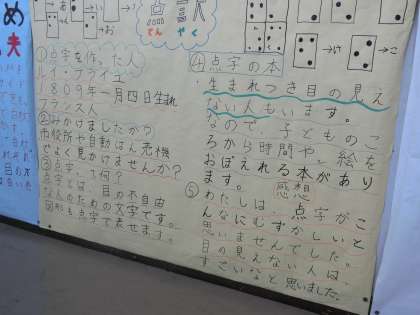 め
夫
あ
お
点訳
てんやく
け
こ
①点字を作った人
ルイ・ブライユ
1809年一月四日生まれ
フランス人
②みかけましたか?
市役所や自動はん売機
でよく見かけませんか?
③点字って何?
点字とは、目の不自由
な人のための文字です。
図形も点字で表せます。
④点字の本
・生まれつき目の見え
ない人もいます。
なので、子どものこ
ろから時間や、絵を
おぼえれる本があり
ます。
感想
⑤わたしは、点字がこ
んなにむずかしいと
思いませんでした。
目の見えない人は、
すごいなと思いました。